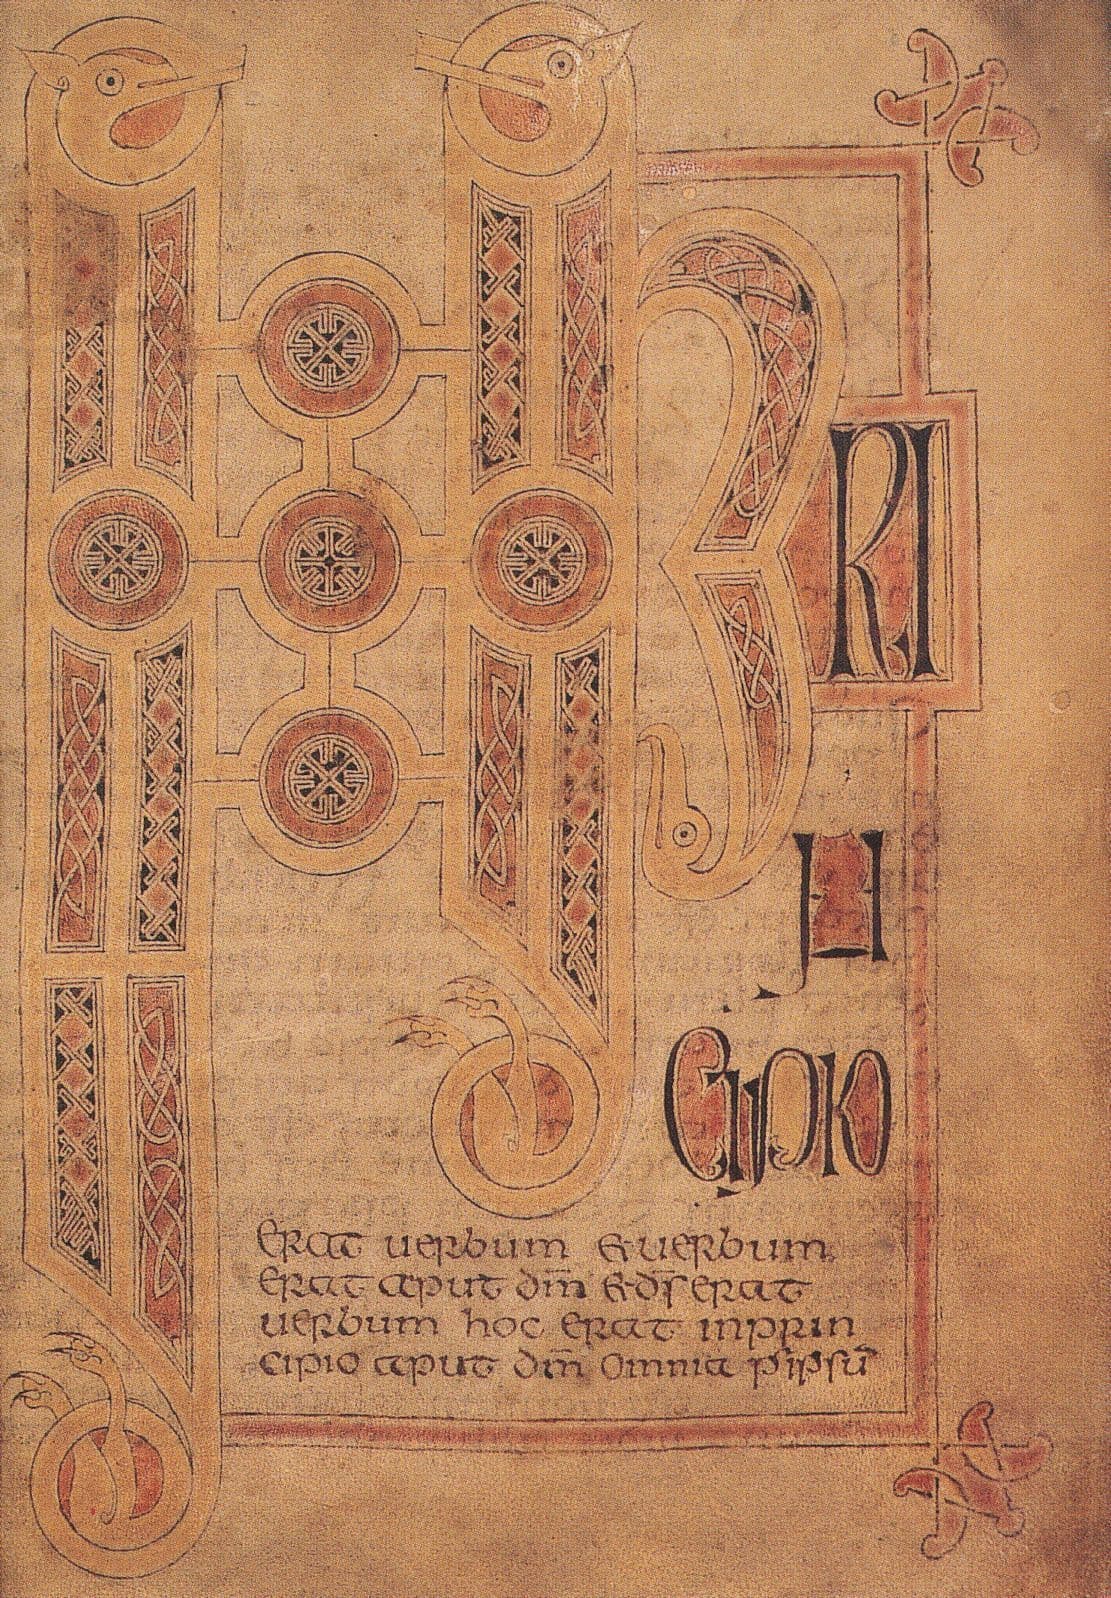 INP
RI
N
CIPIO
erat uerbum & uerbum
erat aput dm̄ & ds̄ erat
uerbum hoc erat inprin
cipio aput dm̄ omnia p̄ ipsū